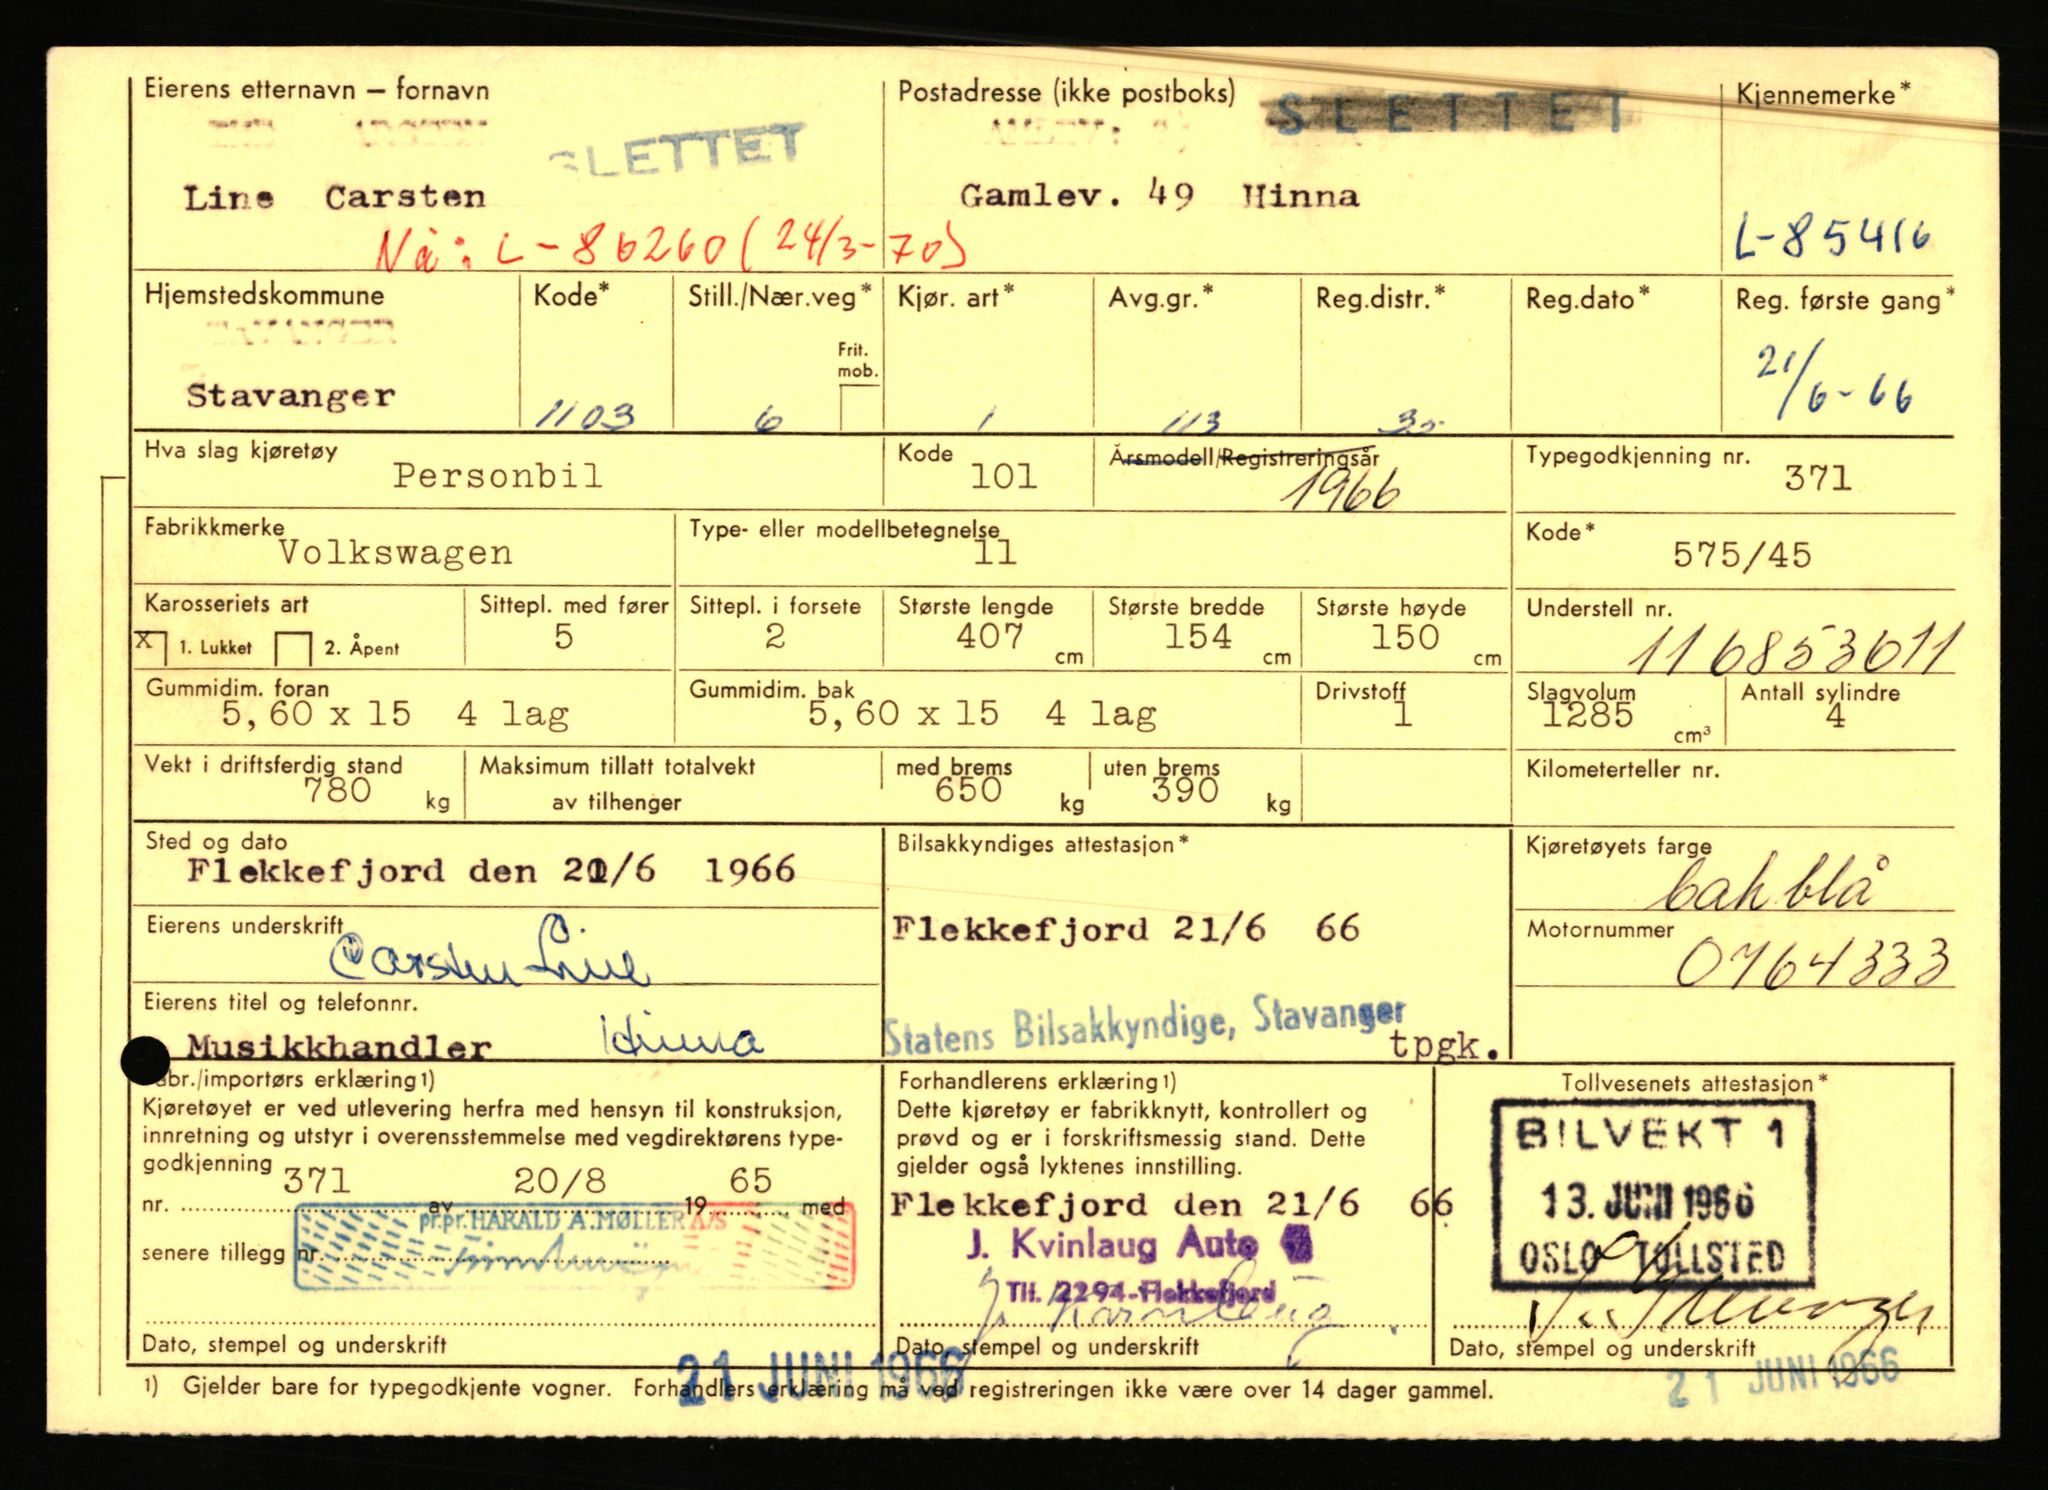 Eierens etternavn — fornavn
Postadresse (ikke postboks)
SLETTET
Kjennemerke*
SLETTET
Line Carsten
Gamlev. 49 Hinna
Nå: L-86260 (24/3-70)
L-85416
Hjemstedskommune
Kode*
Still./Nær.veg*
Kjør. art*
Avg.gr.*
Reg.distr.*
Reg.dato*
Reg. første gang*
Frit. mob.
21/6-66
Stavanger
1103
6
1
113
30
Hva slag kjøretøy
Personbil
Kode
101
Årsmodell/Registreringsår
1966
Typegodkjenning nr.
371
Fabrikkmerke
Volkswagen
Type- eller modellbetegnelse
11
Kode*
575/45
Karosseriets art
X 1. Lukket 2. Åpent
Sittepl. med fører
5
Sittepl. i forsete
2
Største lengde
407 cm
Største bredde
154 cm
Største høyde
150 cm
Understell nr.
116853611
Gummidim. foran
5,60 x 15 4 lag
Gummidim. bak
5,60 x 15 4 lag
Drivstoff
1
Slagvolum
1285 cm³
Antall sylindre
4
Vekt i driftsferdig stand
780 kg
Maksimum tillatt totalvekt
av tilhenger
med brems
650 kg
uten brems
390 kg
Kilometerteller nr.
Sted og dato
Flekkefjord den 21/6 1966
Bilsakkyndiges attestasjon*
Flekkefjord 21/6 66
Statens Bilsakkyndige, Stavanger
tpgk.
Kjøretøyets farge
bah blå
Eierens underskrift
Carsten Line
Motornummer
0764333
Eierens titel og telefonnr.
Musikkhandler Hinna
abr./importørs erklæring1)
Kjøretøyet er ved utlevering herfra med hensyn til konstruksjon,
innretning og utstyr i overensstemmelse med vegdirektørens type-
godkjenning
nr. 371 av 20/8 19 65 med
pr.pr. HARALD A. MØLLER A/S
senere tillegg nr.
Dato, stempel og underskrift
Forhandlerens erklæring1)
Dette kjøretøy er fabrikknytt, kontrollert og
prøvd og er i forskriftsmessig stand. Dette
gjelder også lyktenes innstilling.
Flekkefjord den 21/6 66
J. Kvinlaug Auto
Tlf. 2294-Flekkefjord
J. Kvinlaug
Dato, stempel og underskrift
Tollvesenets attestasjon*
BILVEKT 1
13. JUNI 1966
OSLO TOLLSTED
Dato, stempel og underskrift
21 JUNI 1966
21 JUNI 1966
1) Gjelder bare for typegodkjente vogner. Forhandlers erklæring må ved registreringen ikke være over 14 dager gammel.